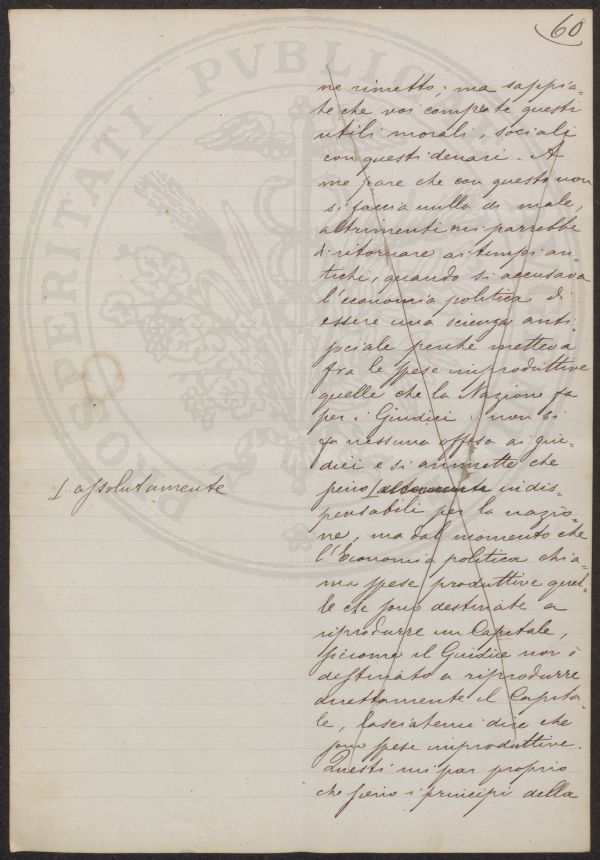 60
ne rimetto; ma sappia-
te che voi comprate questi
utili morali, sociali
con questi denari. A
me pare che con questo non
si faccia nulla di male,
altrimenti mi parrebbe
di ritornare ai tempi an-
tichi, quando si accusava
l'economia politica di
essere una scienza anti
sociale perché metteva
fra le spese improduttive
quelle che la Nazione fa
per i Giudici: non si
fa nessuna offesa ai giu-
dici e si ammette che
sieno indis-
pensabili per la nazio-
ne, ma dal momento che
l'Economia politica chia-
ma spese produttive quel-
le che sono destinate a
riprodurre un Capitale,
siccome il Giudice non è
destinato a riprodurre
direttamente il Capita-
le, lasciatemi dire che
sono spese improduttive.
Questi mi par proprio
che sieno i principi della
assolutamente
PROSPERITATI PUBLICAE